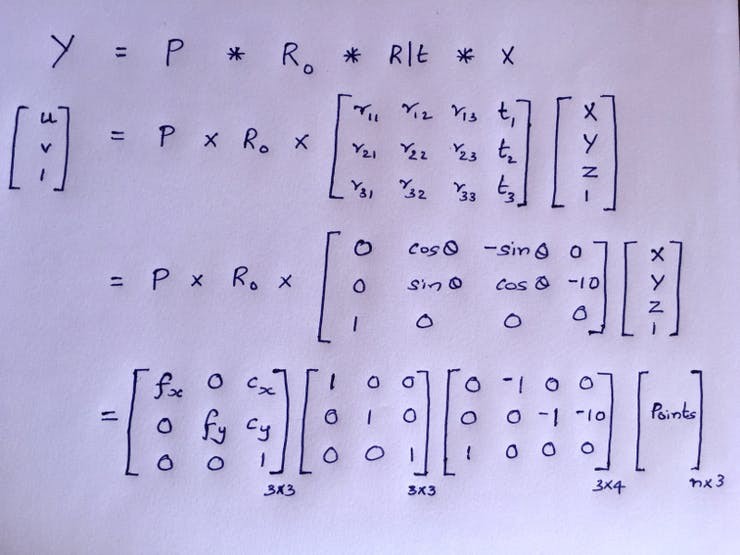 Y = P * R₀ * R|t * X
[u v 1] = P × R₀ × [r₁₁ r₁₂ r₁₃ t₁; r₂₁ r₂₂ r₂₃ t₂; r₃₁ r₃₂ r₃₃ t₃] [X Y Z 1]
= P × R₀ × [0 cosθ -sinθ 0; 0 sinθ cosθ -10; 1 0 0 0] [X Y Z 1]
= [fx 0 cx; 0 fy cy; 0 0 1] 3x3 [1 0 0; 0 1 0; 0 0 1] 3x3 [0 -1 0 0; 0 0 -1 -10; 1 0 0 0] 3x4 [Points] nx3